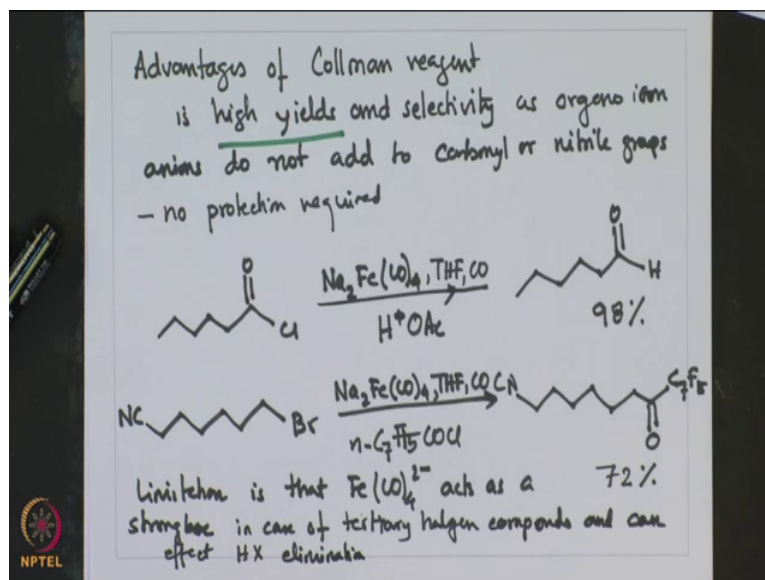 Advantages of Collman reagent
is high yields and selectivity as organo iron
anions do not add to carbonyl or nitrile groups
– no protection required
O
Cl
Na2Fe(CO)4, THF, CO
H+OAc
O
H
98%
NC
Br
Na2Fe(CO)4, THF, CO
n-C7F15COCl
CN
C7F15
O
72%
Limitation is that Fe(CO)4 2- acts as a
strong base in case of tertiary halogen compounds and can
effect HX elimination
NPTEL